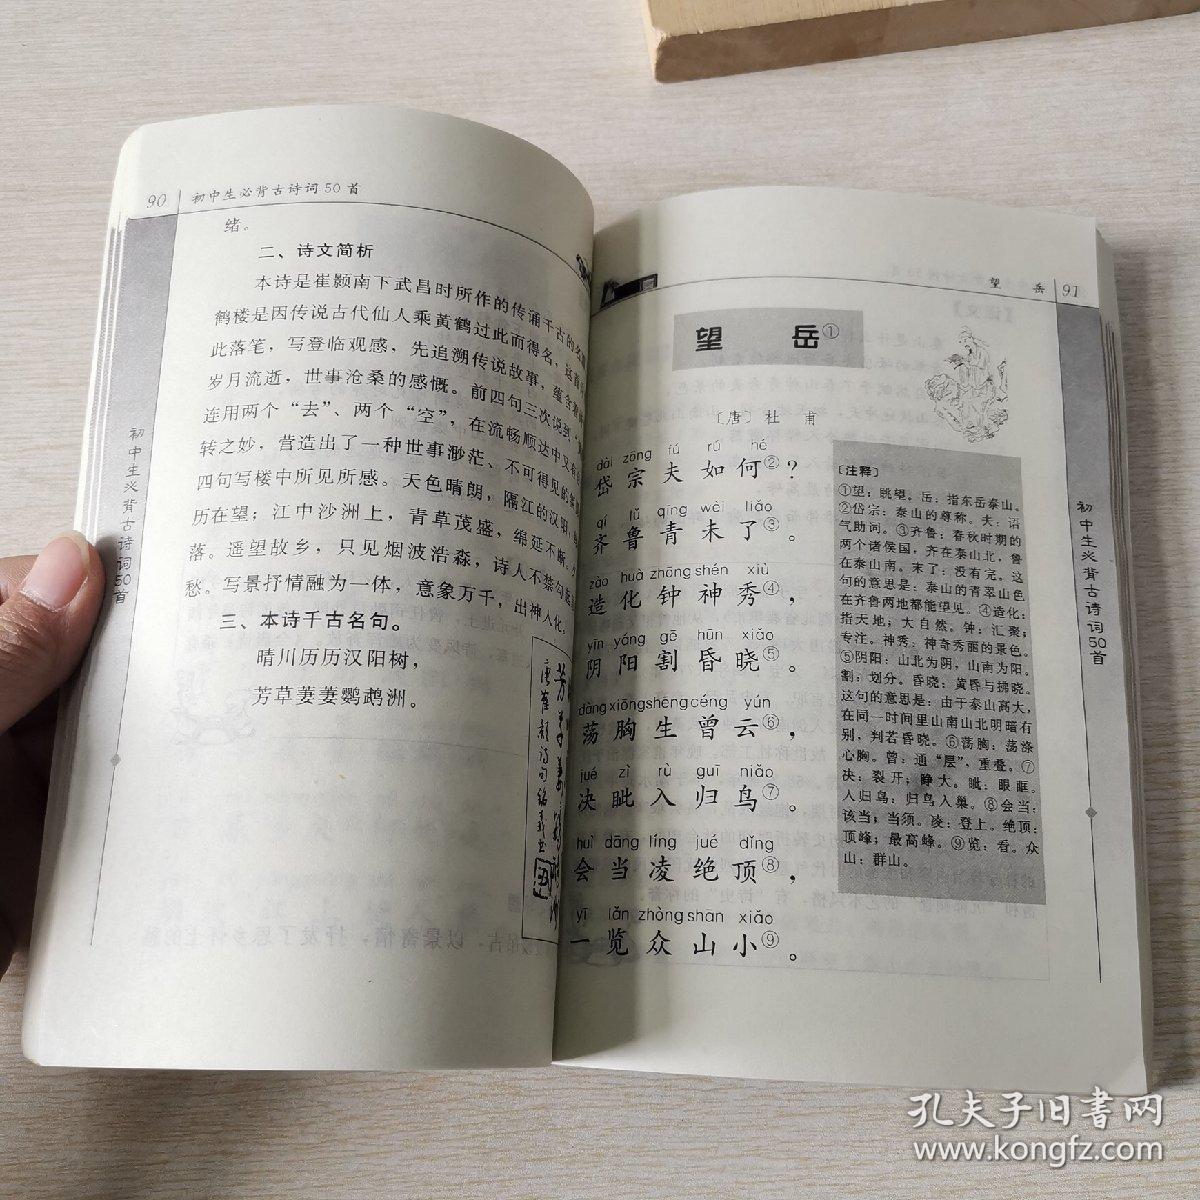 90 初中生必背古诗词50首
绪。
二、诗文简析
本诗是崔颢南下武昌时所作的传诵千古的名
鹤楼是因传说古代仙人乘黄鹤过此而得名,
此落笔,写登临观感,先追溯传说故事,
岁月流逝,世事沧桑的感慨。前四句三次说到
连用两个“去”、两个“空”,在流畅顺达中又有
转之妙,营造出了一种世事渺茫、不可得见的
四句写楼中所见所感。天色晴朗,隔江的汉阳
历在望;江中沙洲上,青草茂盛,绵延不断。
落。遥望故乡,只见烟波浩淼,诗人不禁勾起
愁。写景抒情融为一体,意象万千,出神入化。
三、本诗千古名句。
晴川历历汉阳树,
芳草萋萋鹦鹉洲。
初中生必背古诗词50首
望 岳 91
望 岳①
〔唐〕杜 甫
dài zōng fú rú hé
岱宗夫如何②?
qí lǔ qīng wèi liǎo
齐鲁青未了③。
zào huà zhōng shén xiù
造化钟神秀④,
yīn yáng gē hūn xiǎo
阴阳割昏晓⑤。
dàng xiōng shēng céng yún
荡胸生曾云⑥,
jué zì rù guī niǎo
决眦入归鸟⑦。
huì dāng líng jué dǐng
会当凌绝顶⑧,
yī lǎn zhòng shān xiǎo
一览众山小⑨。
〔注释〕
①望:眺望。岳:指东岳泰山。
②岱宗:泰山的尊称。夫:语
气助词。③齐鲁:春秋时期的
两个诸侯国,齐在泰山北,鲁
在泰山南。未了:没有完。这
句的意思是:泰山的青翠山色
在齐鲁两地都能望见。④造化:
指天地;大自然。钟:汇聚;
专注。神秀:神奇秀丽的景色。
⑤阴阳:山北为阴,山南为阳。
割:划分。昏晓:黄昏与拂晓。
这句的意思是:由于泰山高大,
在同一时间里山南山北明暗有
别,判若昏晓。⑥荡胸:荡涤
心胸。曾:通“层”,重叠。⑦
决:裂开;睁大。眦:眼眶。
入归鸟:归鸟入巢。⑧会当:
该当;当须。凌:登上。绝顶:
顶峰;最高峰。⑨览:看。众
山:群山。
初中生必背古诗词50首
孔夫子旧书网
www.kongfz.com